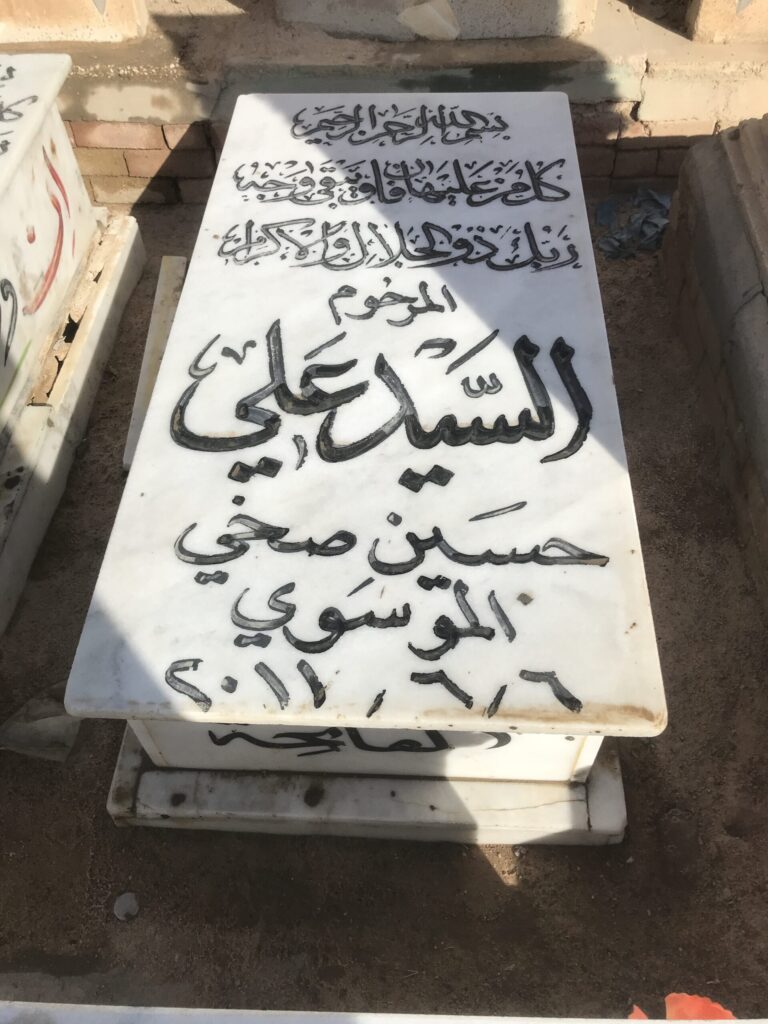 بسم الله الرحمن الرحيم
كل من عليها فان ويبقى وجه
ربك ذو الجلال والاكرام
المرحوم
السَّيد عَلي
حسين صخي
الموسَوي
٢٠١١/٦/٦
الفاتحة